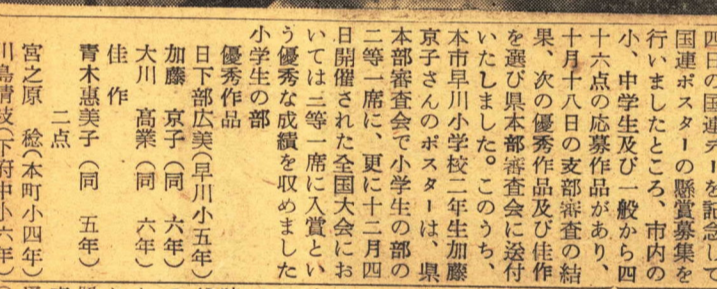 四日の国連デーを記念して
国連ポスターの懸賞募集を
行いましたところ、市内の
小、中学生及び一般から四
十六点の応募作品があり、
十月十八日の支部審査の結
果、次の優秀作品及び佳作
を選び県本部審査会に送付
いたしました。このうち、
本市早川小学校二年生加藤
京子さんのポスターは、県
本部審査会で小学生の部の
二等一席に、更に十二月四
日開催された全国大会にお
いては二等一席に入賞とい
う優秀な成績を収めました
小学生の部
優秀作品
日下部広美(早川小五年)
加藤 京子(同 六年)
大川 高業(同 六年)
佳作
青木惠美子(同 五年)
二点
宮之原 稔(本町小四年)
川島清枝(下府中小六年)